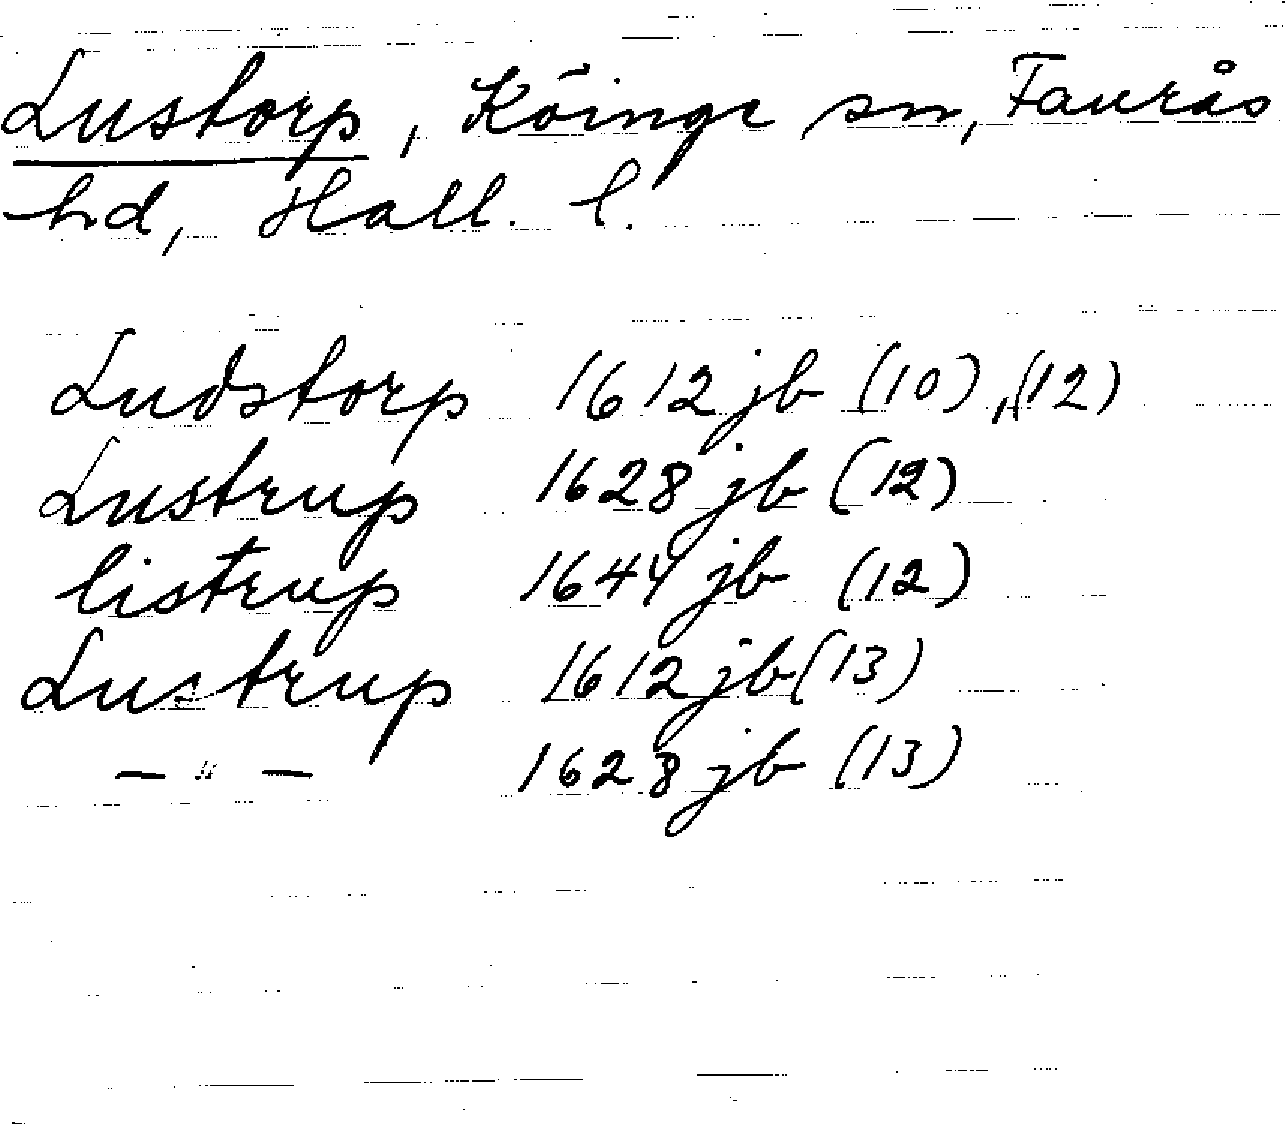 Lustorp, Köinge sn, Faurås
hd, Hall. l.
Ludstorp 1612 jb (10), (12)
Lustrup 1628 jb (12)
listrup 1644 jb (12)
Lustrup 1612 jb (13)
— " — 1628 jb (13)